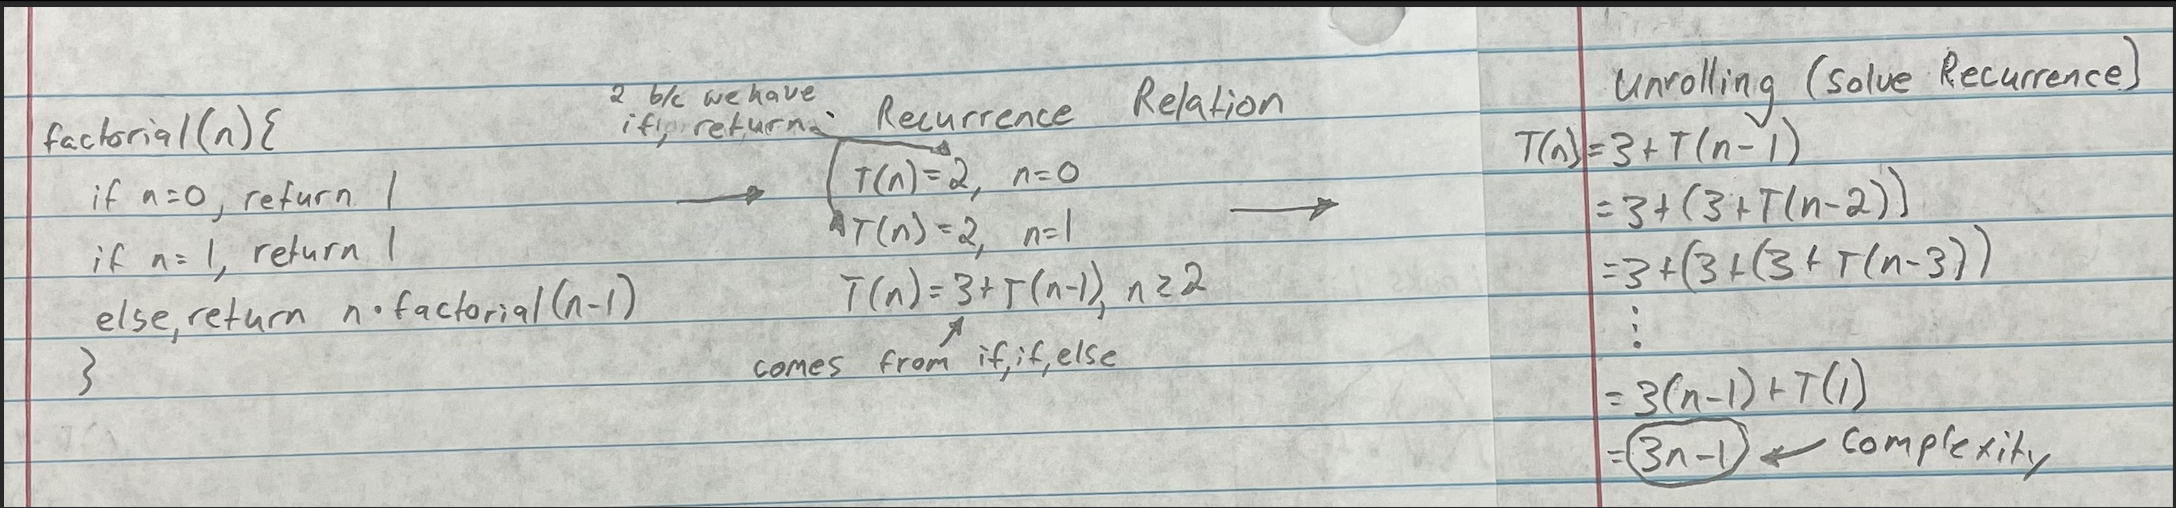 factorial(n){
if n=0, return 1
if n=1, return 1
else, return n•factorial(n-1)
}
2 b/c we have
if, return.
Recurrence Relation
T(n)=2, n=0
T(n)=2, n=1
T(n)=3+T(n-1), n≥2
comes from if, if, else
Unrolling (solve Recurrence)
T(n)=3+T(n-1)
=3+(3+T(n-2))
=3+(3+(3+T(n-3))
⋮
=3(n-1)+T(1)
=3n-1 ← Complexity